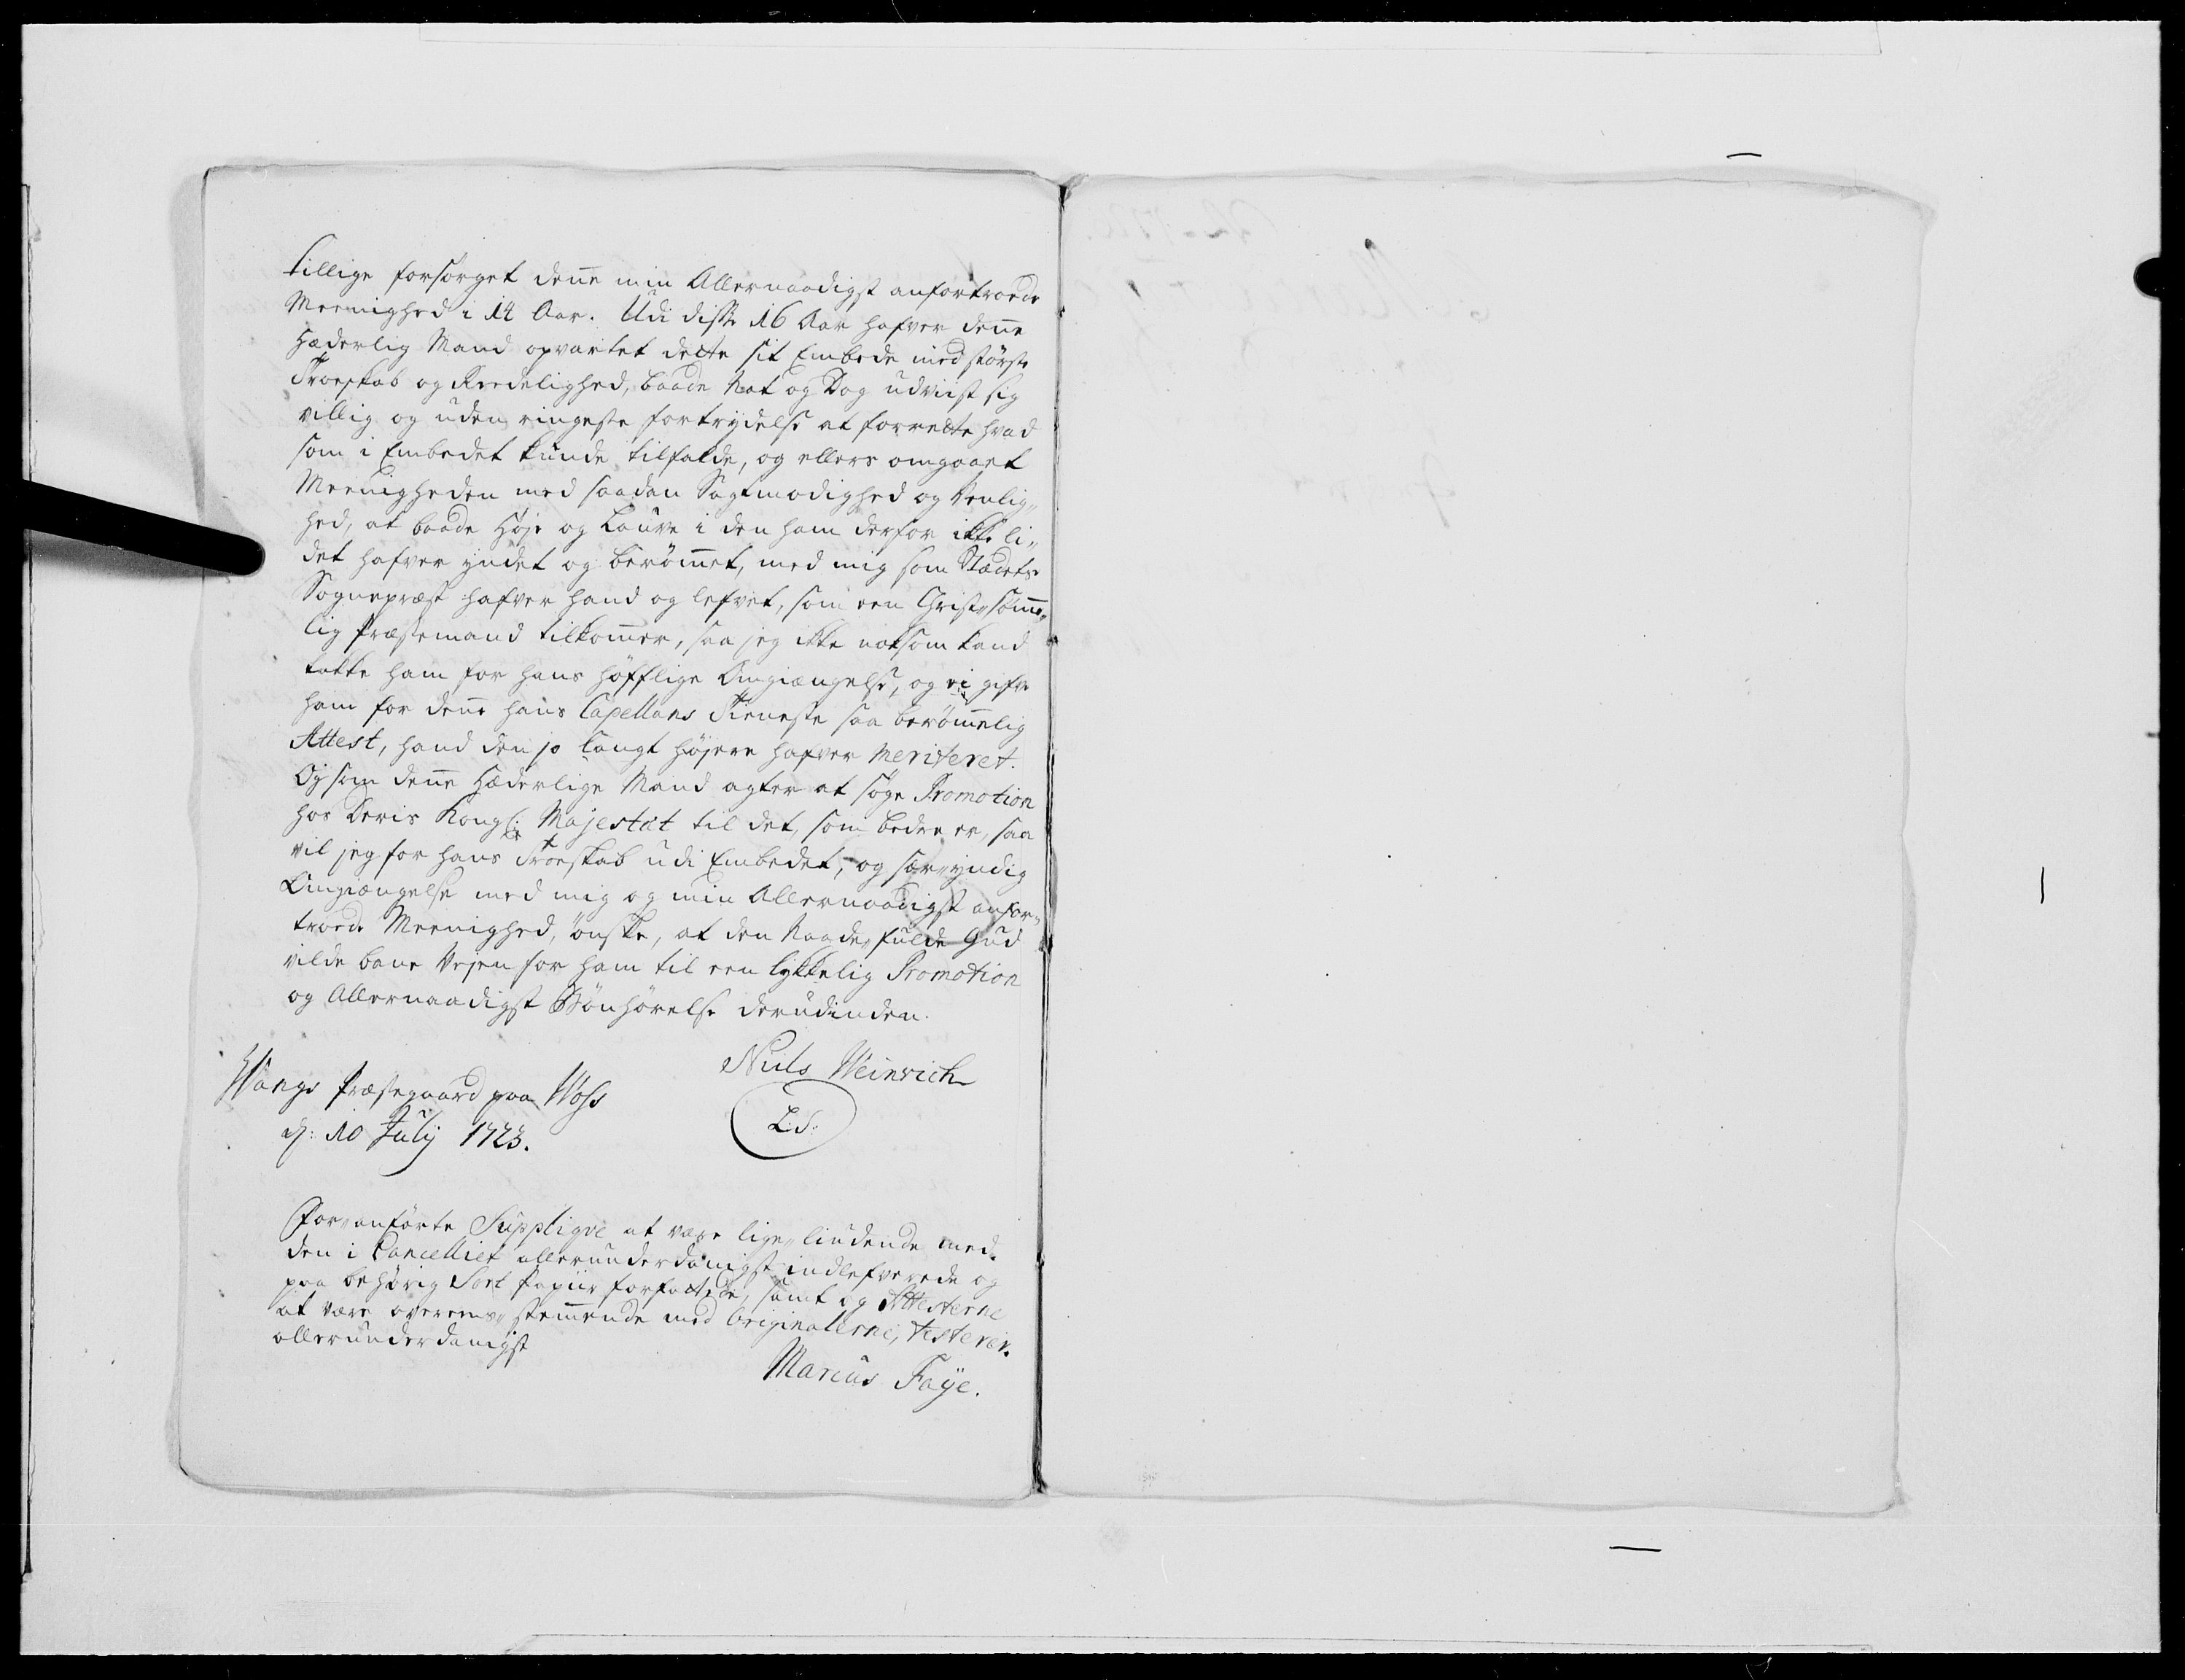 tillige forsörget denne min Allernaadigst anfortroede
Meenighed i 14 Aar. Udi disse 16 Aar hafver denne
Hæderlig Mand opvartet dette sit Embede med störste
Troeskab og Reedelighed, baade Nat og Dag udviist sig
villig og uden ringeste fortrydelse at forrette hvad
som i Embedet kunde tilfalde, og ellers omgaaet
Meenigheden med saadan Sagtmodighed og Venlig„
hed, at baade Höje og Lauve i den ham derfor ikke li„
det hafver yndet og berömmet, med mig som Stædets
Sognepræst hafver hand og lefvet, som een Christ„sömme„
lig Præstemand tilkommer, saa jeg ikke noksom kand
takke ham for hans höfflige Omgiængelse, og ei gifve
ham for denne hans Capellans Tieneste saa berömmelig
Attest, hand den jo langt höjere hafver meriteret.
Og som denne Hæderlige Mand agter at söge Promotion
hos Deris Kongl: Majestæt til det, som bedre er, saa
vil jeg for hans Troeskab udi Embedet, og sær„yndig
Omgiængelse med mig og min Allernaadigst anfor„
troede Meenighed, önske, at den Naade„fulde Gud
vilde bane Vejen for ham til een lykkelig Promotion
og Allernaadigst Bönhörelse derudinden.
Niels Weinrich
Wangs Præstegaard paa Woss
d: 10 July 1723.
L.S.
For„anförte Suppliqve at være lige„liudende med
den i Cancelliet allerunderdanigst indlefverede og
paa behörig Sort Papiir forfattede, samt og Attesterne
at være overeens„stemmende med Originalerne, testerer
allerunderdanigst
Marcus Faÿe.